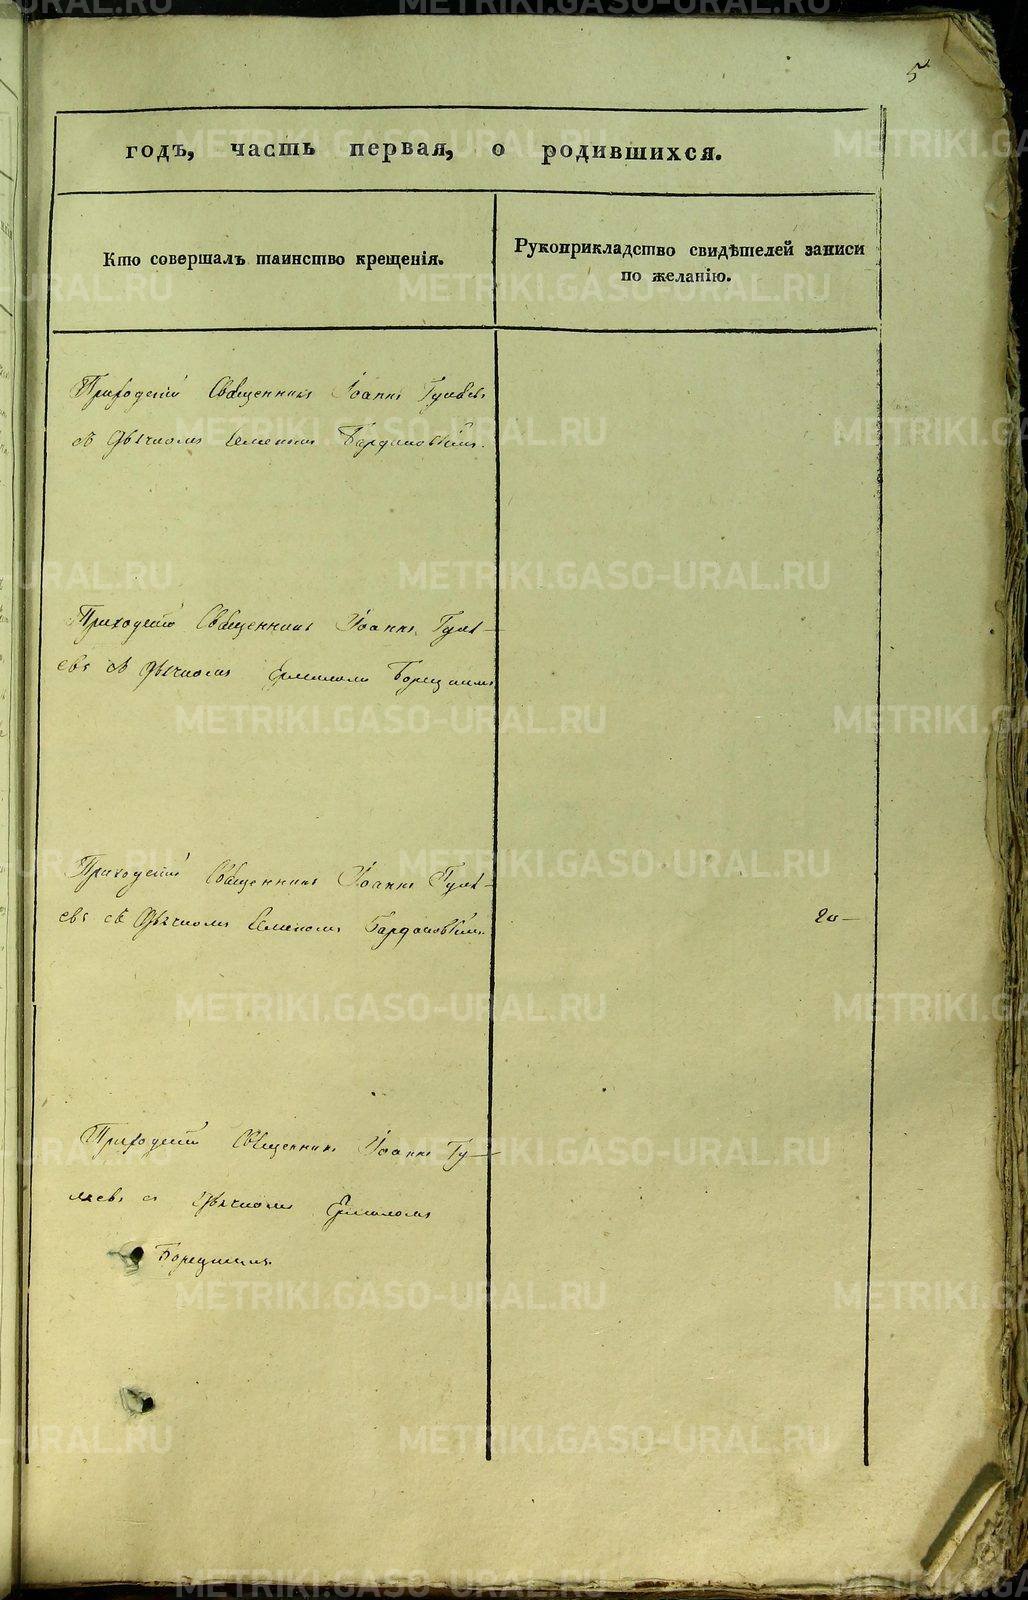 5
годъ, часть первая, о родившихся.
Кто совершалъ таинство крещенія.
Рукоприкладство свидѣтелей записи
по желанію.
Приходскій Священникъ Іоаннъ Гуляевъ
съ Дьячкомъ Семеномъ Бардаковымъ.
Приходскій Священникъ Іоаннъ Гуля–
евъ съ Дьячкомъ Ермиломъ Борецкимъ
Приходскій Священникъ Іоаннъ Гуля–
евъ съ Дьячкомъ Семеномъ
Приходскій Священникъ Іоаннъ Гу–
ляевъ съ Дьячкомъ Ермиломъ
Борецкимъ.
METRIKI.GASO-URAL.RU